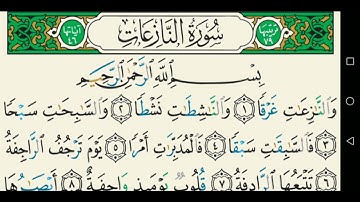 ترتيبها ٧٩ سُورَةُ النَّازِعَاتِ آياتها ٤٦
بِسْمِ اللَّهِ الرَّحْمَٰنِ الرَّحِيمِ
وَالنَّازِعَاتِ غَرْقًا ﴿١﴾ وَالنَّاشِطَاتِ نَشْطًا ﴿٢﴾ وَالسَّابِحَاتِ سَبْحًا
﴿٣﴾ فَالسَّابِقَاتِ سَبْقًا ﴿٤﴾ فَالْمُدَبِّرَاتِ أَمْرًا ﴿٥﴾ يَوْمَ تَرْجُفُ الرَّاجِفَةُ
﴿٦﴾ تَتْبَعُهَا الرَّادِفَةُ ﴿٧﴾ قُلُوبٌ يَوْمَئِذٍ وَاجِفَةٌ ﴿٨﴾ أَبْصَارُهَا